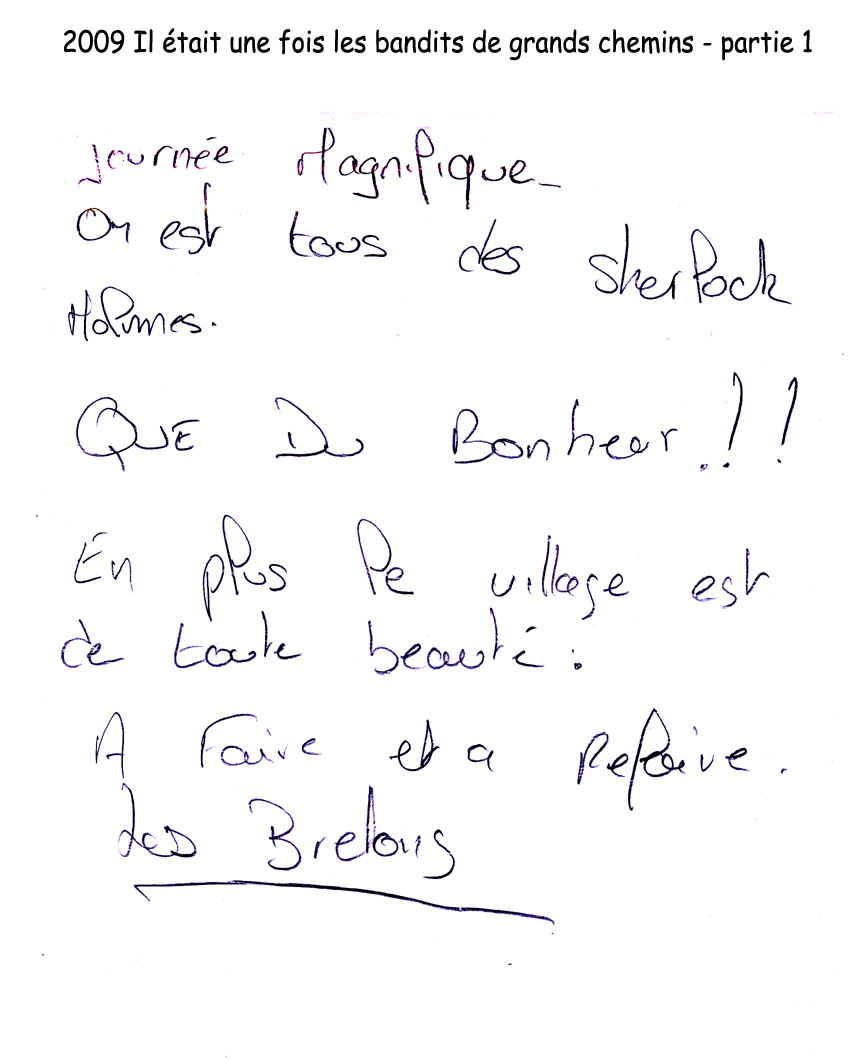 2009 Il était une fois les bandits de grands chemins - partie 1
Journée Magnifique_
On est tous des Sherlock
Holmes.
QUE DU Bonheur !!!
En plus le village est
de toute beauté.
A Faire et a Refaire.
Les Bretons